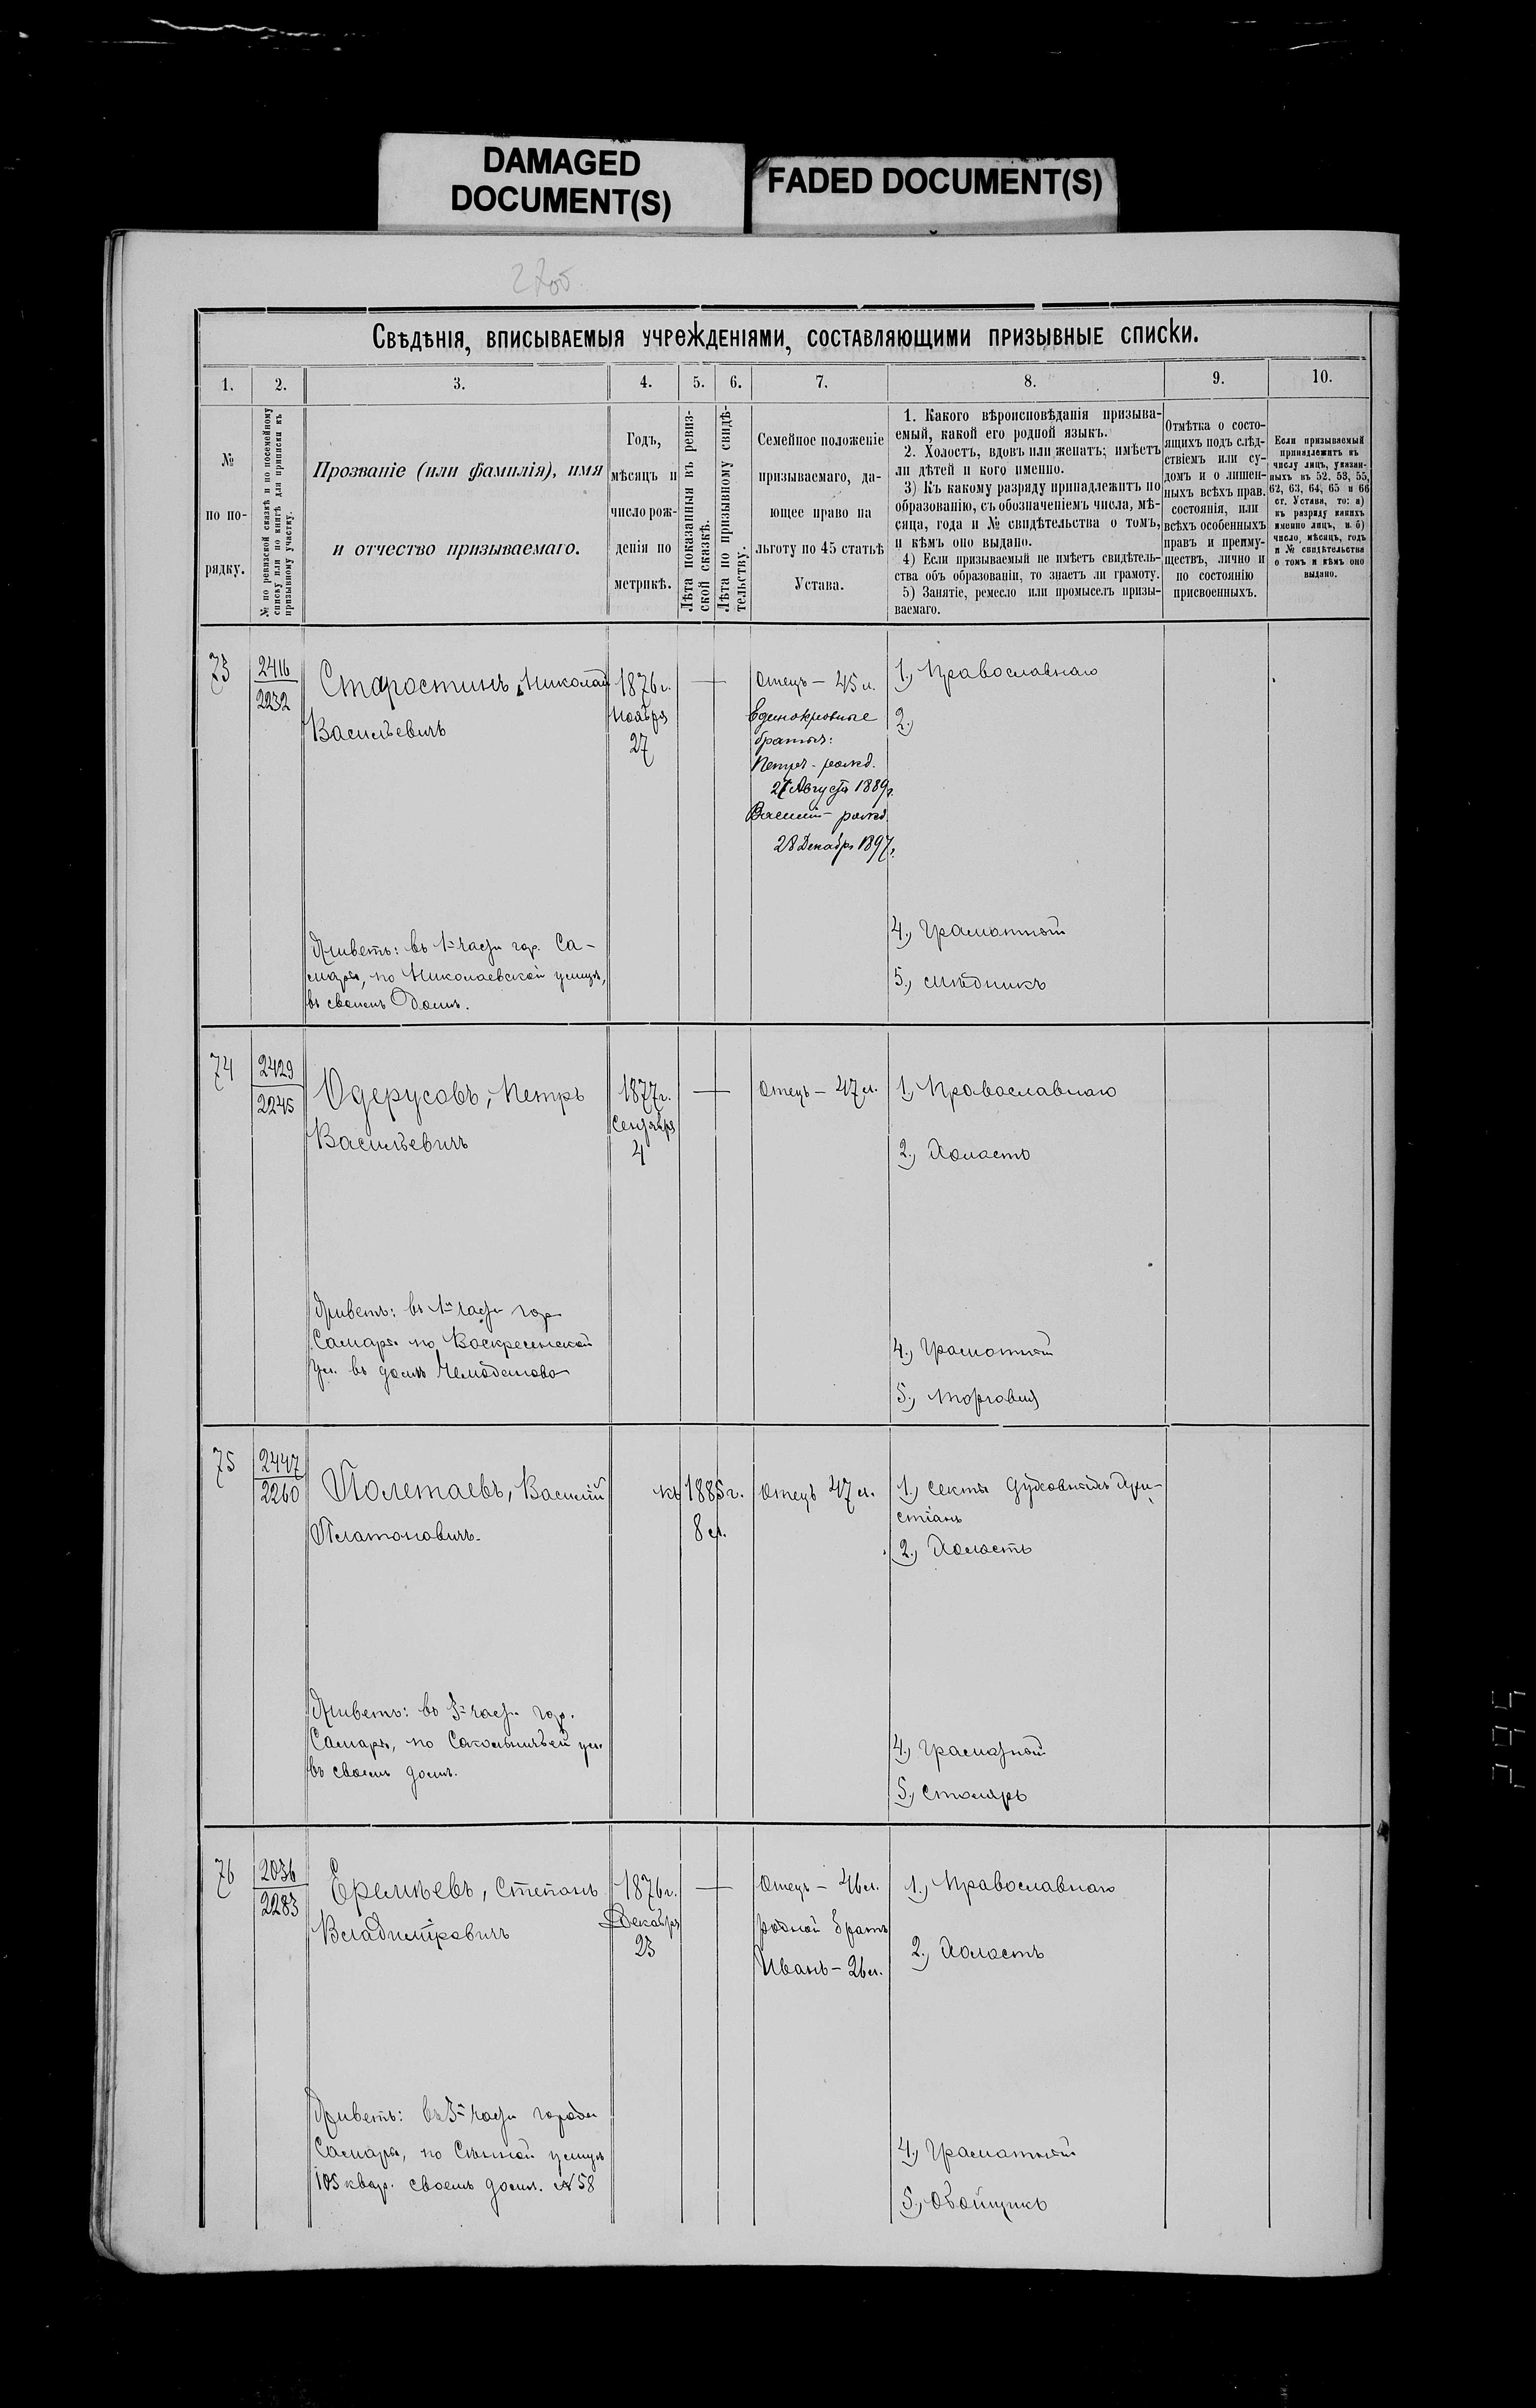 DAMAGED
DOCUMENT(S)
FADED DOCUMENT(S)
Свѣдѣнія, вписываемыя учрежденіями, составляющими призывные списки.
1.
2.
3.
4.
5.
6.
7.
8.
9.
10.
№
по по-
рядку.
№ по ревизской сказкѣ и по посемейному
списку или по книгѣ для приписки къ
призывному участку.
Прозваніе (или фамилія), имя
и отчество призываемаго.
Годъ,
мѣсяцъ и
число рож-
денія по
метрикѣ.
Лѣта показанныя въ ревиз-
ской сказкѣ.
Лѣта по призывному свидѣ-
тельству.
Семейное положеніе
призываемаго, да-
ющее право на
льготу по 45 статьѣ
Устава.
1. Какого вѣроисповѣданія призыва-
емый, какой его родной языкъ.
2. Холостъ, вдовъ или женатъ; имѣетъ
ли дѣтей и кого именно.
3) Къ какому разряду принадлежитъ по
образованію, съ обозначеніемъ числа, мѣ-
сяца, года и № свидѣтельства о томъ,
и кѣмъ оно выдано.
4) Если призываемый не имѣетъ свидѣтель-
ства объ образованіи, то знаетъ ли грамоту.
5) Занятіе, ремесло или промыселъ призы-
ваемаго.
Отмѣтка о состо-
ящихъ подъ слѣд-
ствіемъ или су-
домъ и о лишен-
ныхъ всѣхъ прав.
состоянія, или
всѣхъ особенныхъ
правъ и преиму-
ществъ, лично и
по состоянію
присвоенныхъ.
Если призываемый
принадлежитъ къ
числу лицъ, указан-
ныхъ въ 52, 53, 55,
62, 63, 64, 65 и 66
ст. Устава, то: а)
къ разряду какихъ
именно лицъ, и б)
число, мѣсяцъ, годъ
и № свидѣтельства
о томъ и кѣмъ оно
выдано.
73
2416
2232
Старостинъ, Николай
Васильевичъ
1876 г.
Ноября
27
Отецъ — 45 л.
Единокровные
братья:
Петръ - рожд.
Августа 1889 г.
Василій - рожд.
28 Декабр. 1897 г.
1., Православнаго
2.)
4., Грамотный
5., мѣдникъ
Живетъ: въ 1й части гор. Са-
марѣ, по Николаевской улицѣ,
въ своемъ домѣ.
74
2429
2245
Одерусовъ, Петръ
Васильевичъ
1877 г.
Сентября
4
Отецъ — 47 л.
1., Православнаго
2., Холостъ
4., Грамотный
5., торговля
Живетъ: въ 1й части гор.
Самары по Воскресенской
ул. въ домѣ Чемоданова
75
2447
2260
Полетаевъ, Василій
Платоновичъ.
къ 1885 г.
8 л.
Отецъ 47 л.
1., Секты Духовныхъ Хри-
стіанъ
2., Холостъ
4., Грамотный
5., Столяръ
Живетъ: въ 3й части гор.
Самары, по Сокольничьей ул.
въ своемъ домѣ.
76
2036
2283
Еремѣевъ, Степанъ
Владиміровичъ
1876 г.
Декабря
23
Отецъ — 46 л.
родной братъ
Иванъ — 26 л.
1., Православнаго
2., Холостъ
4., Грамотный
5., Обойщикъ
Живетъ: въ 3й части города
Самары, по Сѣнной улицѣ
105 квар. своемъ домѣ. № 58
295